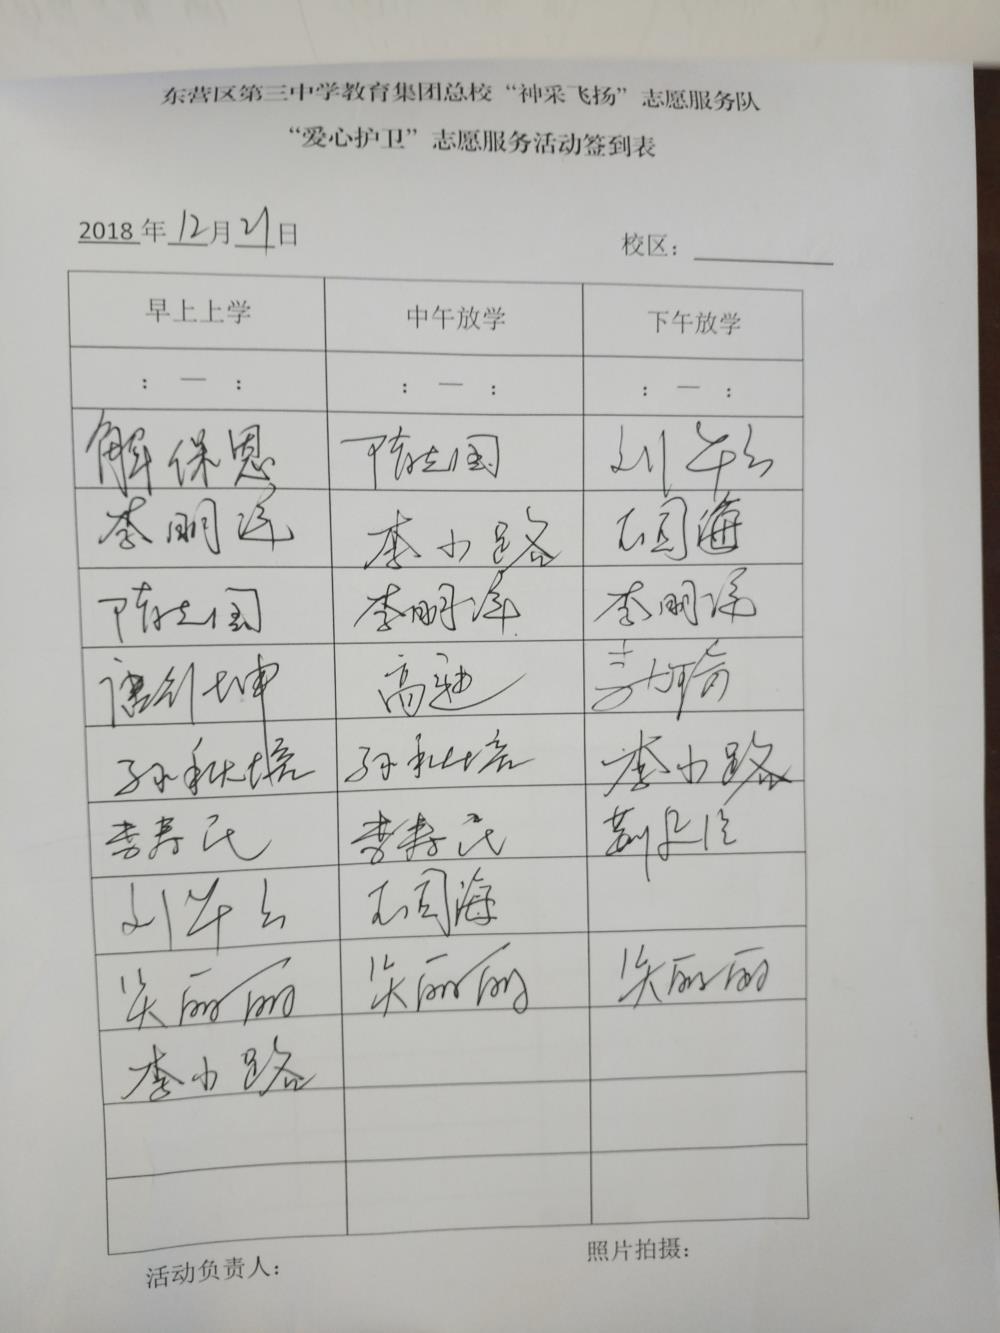 东营区第三中学教育集团总校“神采飞扬”志愿服务队
“爱心护卫”志愿服务活动签到表
2018年12月21日 校区：
早上上学 中午放学 下午放学
：— ： ：— ： ：— ：
解保恩 陈志国 刘华云
李明洋 李小路 石同海
陈志国 李明洋 李明洋
唐剑坤 高驰
孙秋培 孙秋培 李小路
李寿民 李寿民
刘华云 石同海
吴丽丽 吴丽丽 吴丽丽
李小路
活动负责人： 照片拍摄：